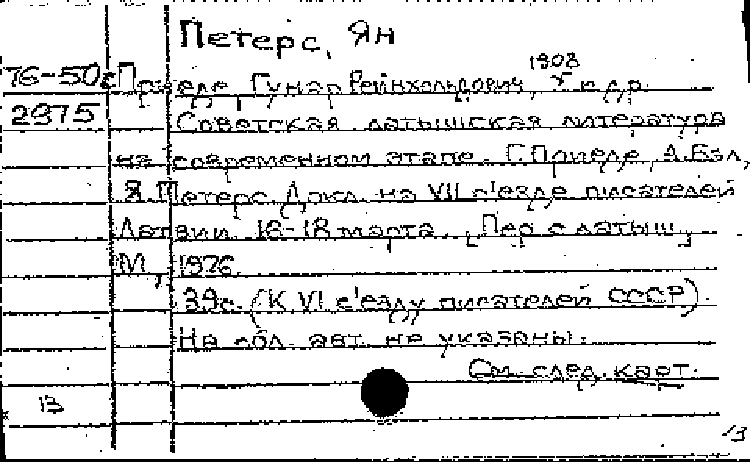 Петерс, Ян
1908
76-50с Приеде, Гунар Рейнхольдович, и др.
2975 Советская латышская литература
на современном этапе. Г. Приеде, А. Бэл,
Я. Петерс. Докл. на VII съезде писателей
Латвии. 16-18 марта. [Пер. с латыш.]
М., 1976.
39с. (К VI с'езду писателей СССР).
На обл. авт. не указаны.
См. след. карт.
13
13